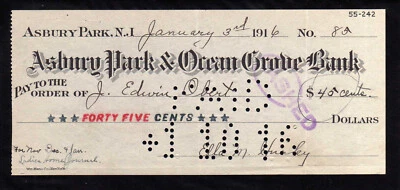 55-242
ASBURY PARK, N.J. January 3rd 1916 No. 82
Asbury Park & Ocean Grove Bank
PAY TO THE ORDER OF J. Edwin Obert $45 cents.
FORTY FIVE CENTS DOLLARS
PAID
1 10 16
For New Dec. & Jan.
Ladies Home Journal. Ella M.